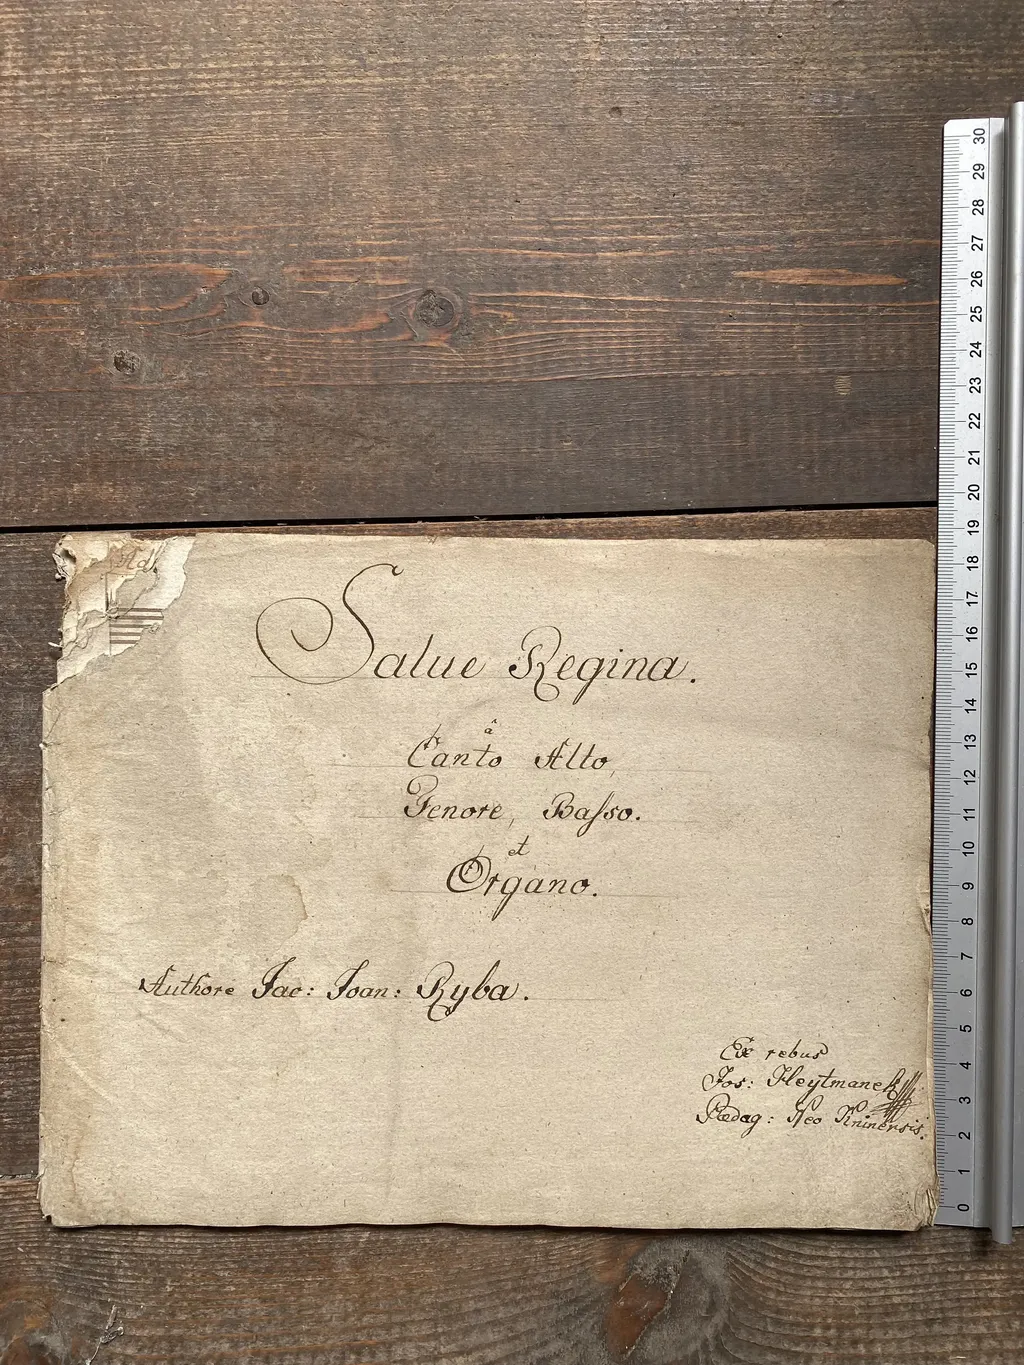 Salue Regina.
â
Canto Alto,
Tenore, Baſso.
et
Organo.
Authore Jac: Joan: Ryba.
Ex rebus
Jos: Heytmanek
Pædag: Neo Kninensis.
30
29
28
27
26
25
24
23
22
21
20
19
18
17
16
15
14
13
12
11
10
9
8
7
6
5
4
3
2
1
0